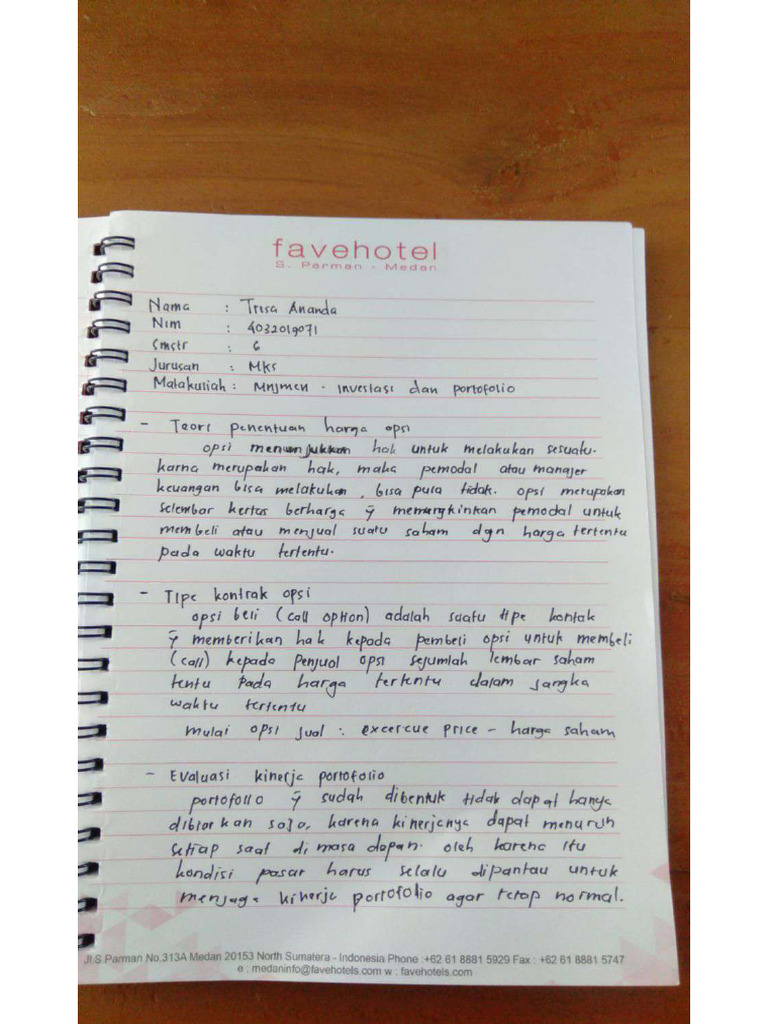 favehotel
S. Parman - Medan
Nama : Trisa Ananda
Nim : 4032019071
Smstr : 6
Jurusan : MKS
Matakuliah : Mnjmen - investasi dan portofolio
- Teori penentuan harga opsi
opsi menunjukkan hak untuk melakukan sesuatu.
karna merupakan hak, maka pemodal atau manajer
keuangan bisa melakukan, bisa pula tidak. opsi merupakan
selembar kertas berharga ÿ memungkinkan pemodal untuk
membeli atau menjual suatu saham dgn harga tertentu
pada waktu tertentu.
- Tipe kontrak opsi
opsi beli (call option) adalah suatu tipe kontak
ÿ memberikan hak kepada pembeli opsi untuk membeli
(call) kepada penjual opsi sejumlah lembar saham
tentu pada harga tertentu dalam jangka
waktu tertentu
mulai opsi jual : excercue price - harga saham
- Evaluasi kinerja portofolio
portofolio ÿ sudah dibentuk tidak dapat hanya
dibiarkan saja, karena kinerjanya dapat menurun
setiap saat di masa dapan. oleh karena itu
kondisi pasar harus selalu dipantau untuk
menjaga kinerja portofolio agar tetap normal.
Jl.S Parman No.313A Medan 20153 North Sumatera - Indonesia Phone :+62 61 8881 5929 Fax : +62 61 8881 5747
e : medaninfo@favehotels.com w : favehotels.com